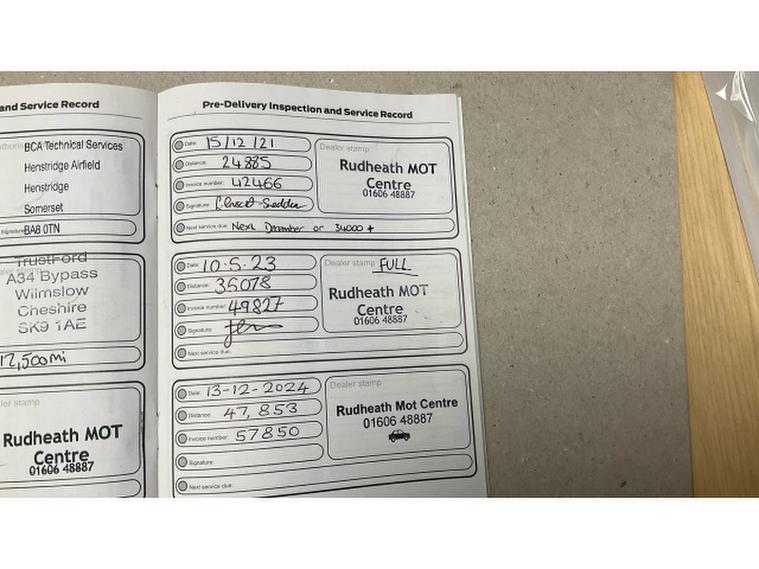 and Service Record
BCA Technical Services
Henstridge Airfield
Henstridge
Somerset
Signature: BA8 0TN
TrustFord
A34 Bypass
Wilmslow
Cheshire
SK9 1AE
12,500mi
ler stamp
Rudheath MOT
Centre
01606 48887
Pre-Delivery Inspection and Service Record
Date: 15/12/21
Distance: 24885
Invoice number: 42466
Signature:
Next service due: Next December or 34000 +
Dealer stamp
Rudheath MOT
Centre
01606 48887
Date: 10.5.23
Distance: 35078
Invoice number: 49827
Signature:
Next service due:
Dealer stamp FULL
Rudheath MOT
Centre
01606 48887
Date: 13-12-2024
Distance: 47,853
Invoice number: 57850
Signature:
Next service due:
Dealer stamp
Rudheath Mot Centre
01606 48887